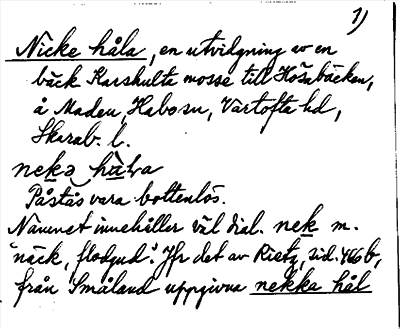 1)
Nicke håla, en utvidgning av en
bäck Karshulta mosse till Hošabäcken,
å Maden, Habo sn, Vartofta hd,
Skarab. l.
nekə hàlva
Påstås vara bottenlös.
Namnet innehåller väl dial. nek m.
"näck, flodgud". Jfr det av Rietz, sid. 466 b,
från Småland uppgivna nekka hål